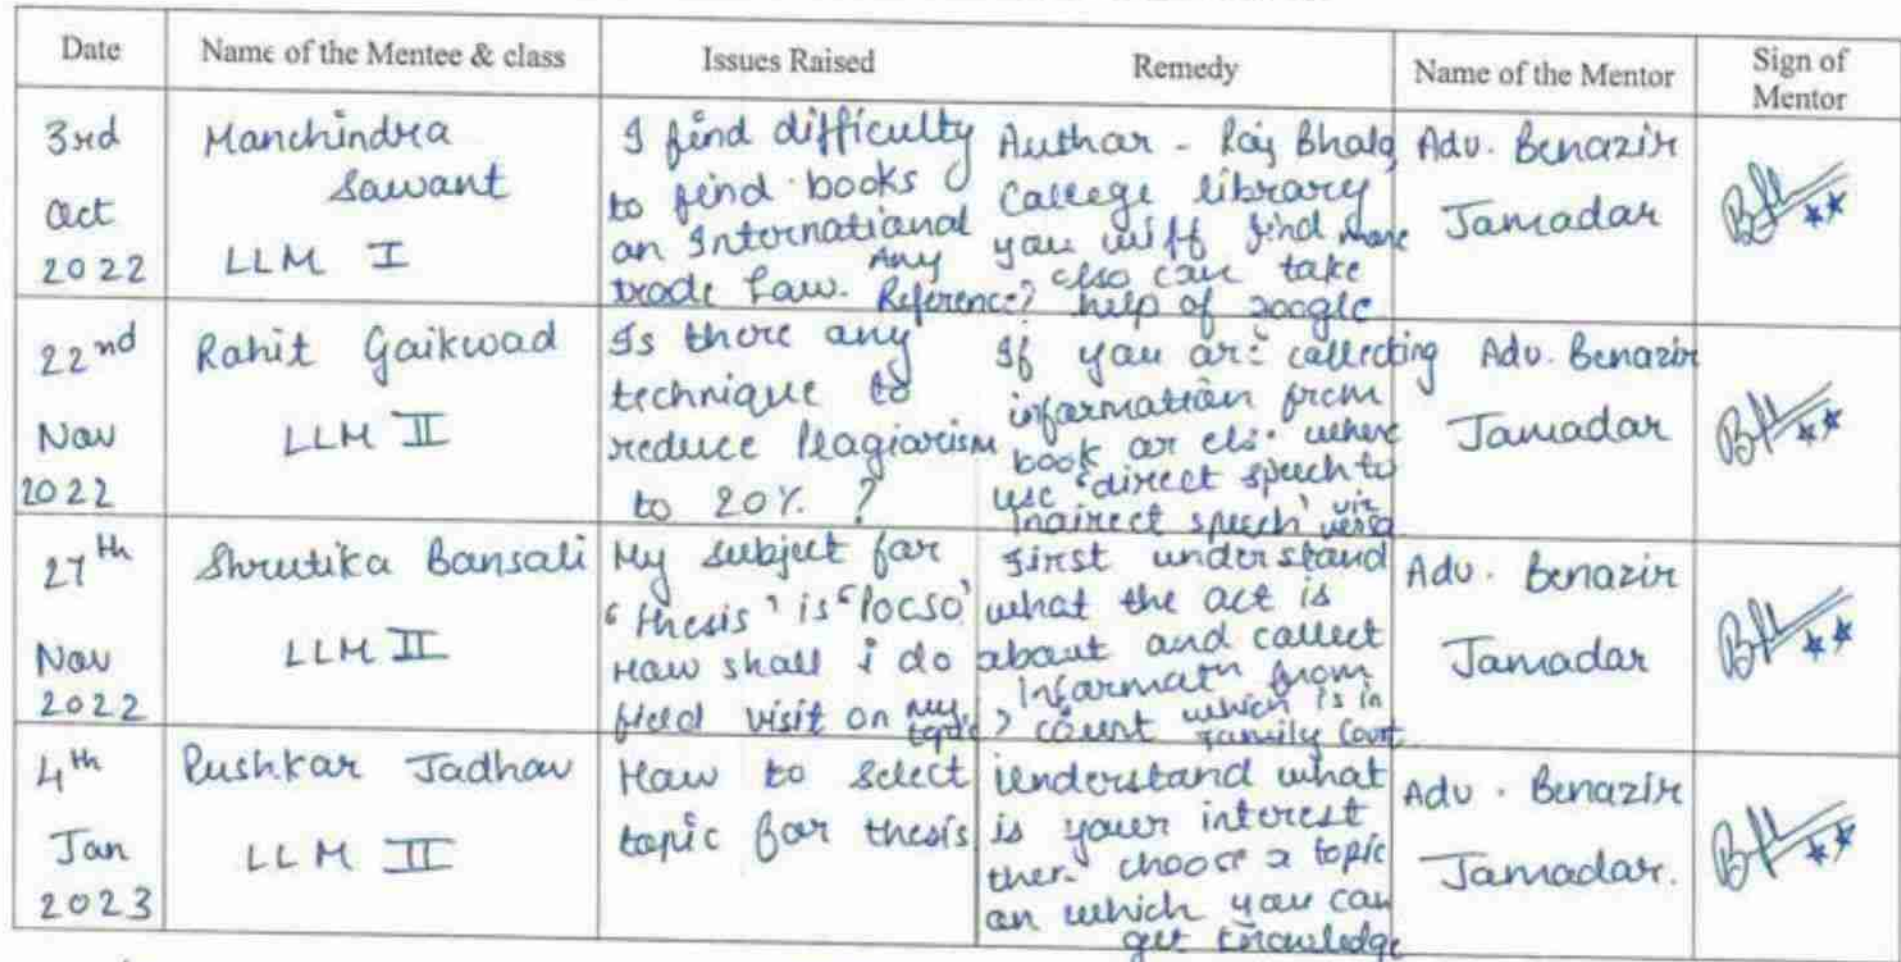 Date
Name of the Mentee & class
Issues Raised
Remedy
Name of the Mentor
Sign of
Mentor
3rd
Oct
2022
Manchindra
Sawant
LLM I
I find difficulty
to find books
on International
trade Law. Any
Reference?
Author - Raj Bhala
College library
you will find more
also can take
help of google
Adv. Benazir
Jamadar
22nd
Nov
2022
Rohit Gaikwad
LLM II
Is there any
technique to
reduce Plagiarism
to 20% ?
If you are collecting
information from
book or else where
use 'direct speech to
indirect speech' vic
versa
Adv. Benazir
Jamadar
27th
Nov
2022
Shrutika Bansali
LLM II
My subject for
'thesis' is 'POCSO'
How shall i do
field visit on my
topic?
First understand
what the act is
about and collect
Informatn from
court which is in
Family Court
Adv. Benazir
Jamadar
4th
Jan
2023
Pushkar Jadhav
LLM II
How to select
topic for thesis
Understand what
is your interest
then choose a topic
on which you can
get knowledge
Adv. Benazir
Jamadar.